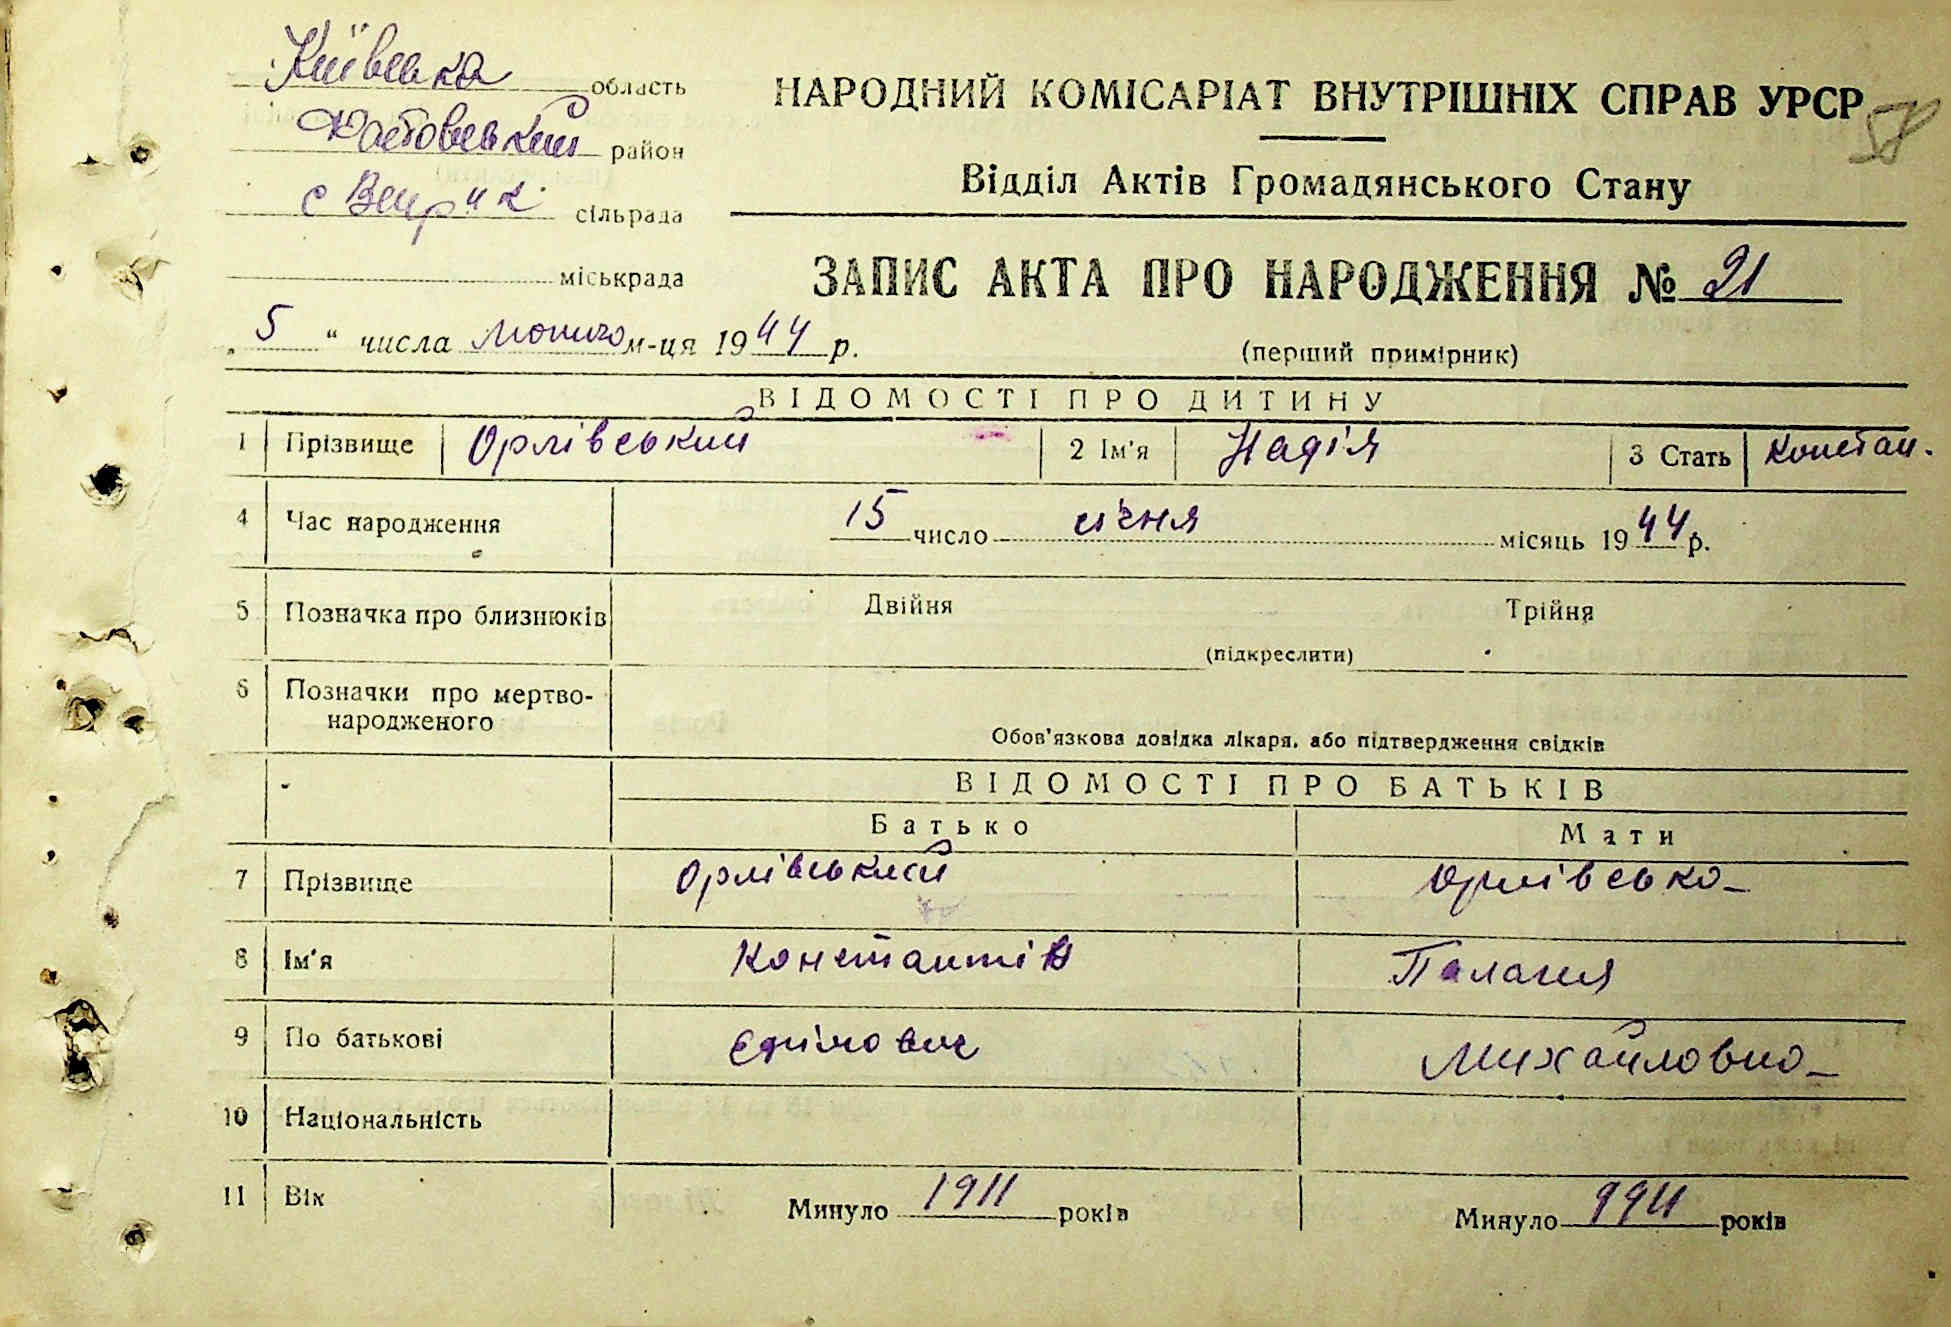 Київська область
НАРОДНИЙ КОМІСАРІАТ ВНУТРІШНІХ СПРАВ УРСР
58
Фастовський район
Відділ Актів Громадянського Стану
с Веприк сільрада
міськрада
ЗАПИС АКТА ПРО НАРОДЖЕННЯ № 21
„5“ числа лютого м-ця 1944 р.
(перший примірник)
ВІДОМОСТІ ПРО ДИТИНУ
1 Прізвище Орлівський 2 Ім'я Надія 3 Стать Констан.
4 Час народження 15 число січня місяць 1944 р.
5 Позначка про близнюків Двійня Трійня
(підкреслити)
6 Позначки про мертво-
народженого
Обов'язкова довідка лікаря, або підтвердження свідків
ВІДОМОСТІ ПРО БАТЬКІВ
Батько Мати
7 Прізвище Орлівський Орлівська
8 Ім'я Константін Палагия
9 По батькові Єфімович Михайловна
10 Національність
11 Вік Минуло 1911 років Минуло років